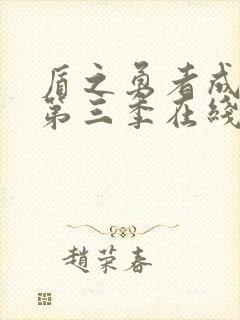 盾之勇者成
第三季在綫
趙荣春